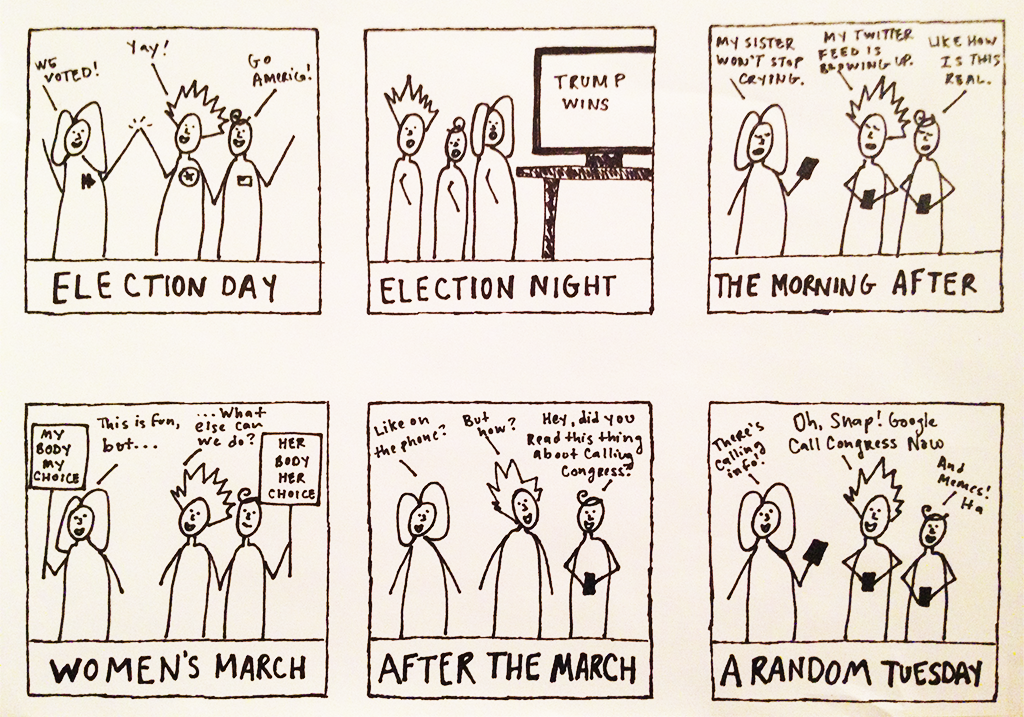 WE
VOTED!
Yay!
GO
AMERICA!
ELECTION DAY
TRUMP
WINS
ELECTION NIGHT
MY SISTER
WON'T STOP
CRYING.
MY TWITTER
FEED IS
BLOWING UP.
LIKE HOW
IS THIS
REAL.
THE MORNING AFTER
MY
BODY
MY
CHOICE
This is fun,
but...
...What
else can
we do?
HER
BODY
HER
CHOICE
WOMEN'S MARCH
Like on
the phone?
But
how?
Hey, did you
Read this thing
about calling
Congress?
AFTER THE MARCH
There's
calling
info!
Oh, Snap! Google
Call Congress Now
And
Memes!
Ha
A RANDOM TUESDAY